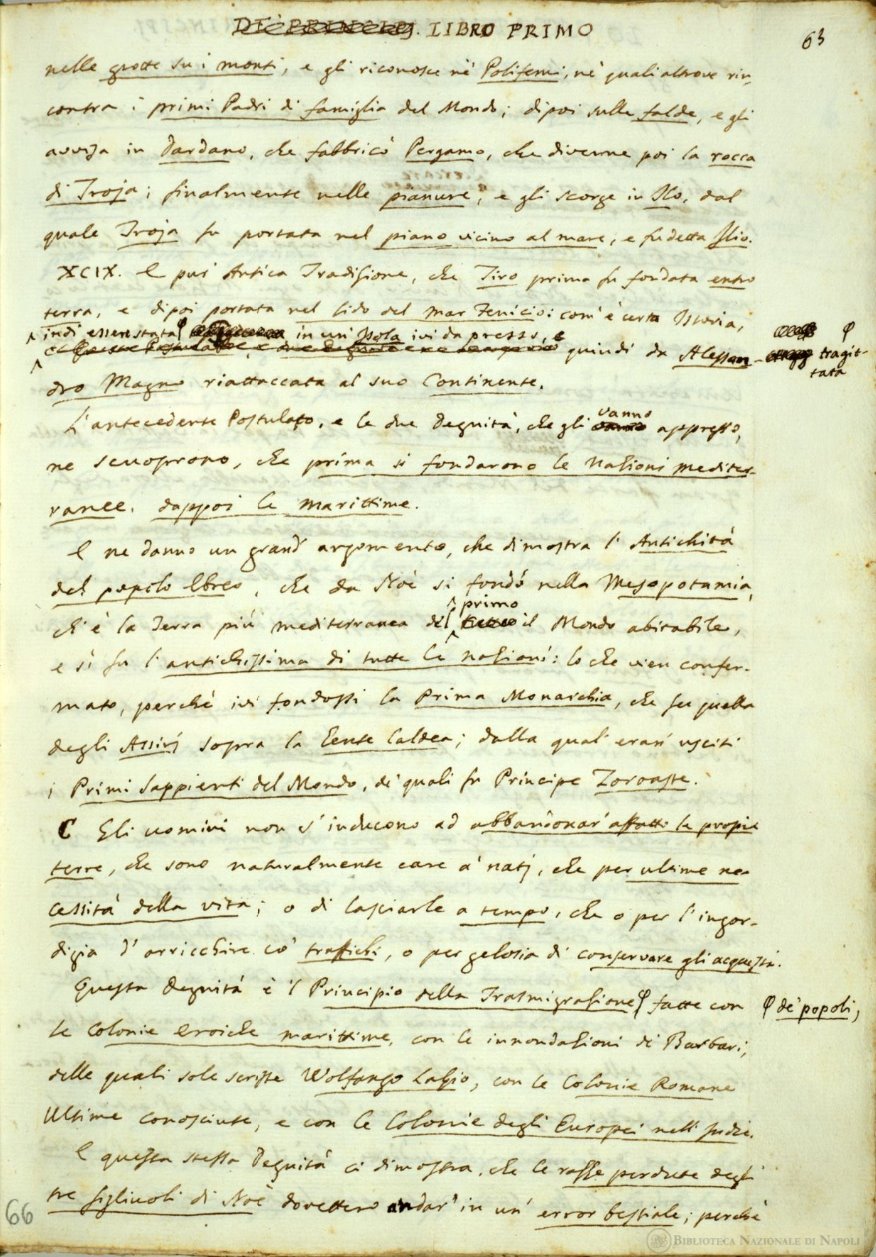 DE' PRINCIPJ. LIBRO PRIMO
63
nelle grotte su i monti, e gli riconosce ne' Polifemi, ne' quali altrove rin-
contra i primi Padri di famiglia del Mondo; dipoi sulle falde, e gli
avvisa in Dardano, che fabbricò Pergamo, che divenne poi la rocca
di Troja; finalmente nelle pianure, e gli scorge in Ilo, dal
quale Troja fu portata nel piano vicino al mare, e fu detta Ilio.
XCIX. E' pur' Antica Tradizione, che Tiro prima fu fondata entro
terra, e dipoi portata nel lido del mar Fenicio: com'è certa Istoria,
indi essere stata φ in un' Isola ivi da presso, e
quindi da Alessan-
φ tragit-
tata
dro Magno riattaccata al suo Continente.
L'antecedente Postulato, e le due Degnità, che gli vanno appresso,
ne scuoprono, che prima si fondarono le Nazioni mediter-
ranee, dappoi le marittime.
E ne danno un grand' argomento, che dimostra l'Antichità
del popolo Ebreo, che da Noè si fondò nella Mesopotamia,
ch'è la Terra più mediterranea del primo il Mondo abitabile,
e sì fu l'antichissima di tutte le nazioni: lo che vien confer-
mato, perchè ivi fondossi la Prima Monarchia, che fu quella
degli Assirj sopra la Gente Caldea; dalla qual' eran' usciti
i Primi Sappienti del Mondo, de' quali fu Principe Zoroaste.
C Gli uomini non s'inducono ad abbandonar' affatto le proprie
terre, che sono naturalmente care a' natj, che per ultime ne-
cessità della vita; o di lasciarle a tempo, che o per l'ingor-
digia d'arricchire co' traffichi, o per gelosia di conservare gli acquisti.
Questa Degnità è 'l Principio della Trasmigrazione φ fatte con
φ de' popoli,
le Colonie eroiche marittime, con le innondazioni de' Barbari,
delle quali sole scrisse Wolfango Lazio, con le Colonie Romane
Ultime conosciute, e con le Colonie degli Europei nell' Indie.
E questa stessa Degnità ci dimostra, che le razze perdute degli
tre figliuoli di Noè dovettero andar' in un' error bestiale; perchè
66
BIBLIOTECA NAZIONALE DI NAPOLI